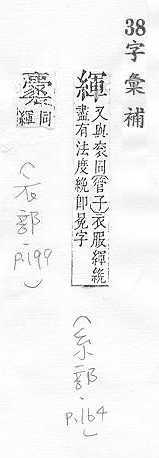 38字彙補
緷
又與衮同(管子)衣服緷絻
盡有法度絻即冕字
(系部 p.164)
同緷
(衣部 p.199)